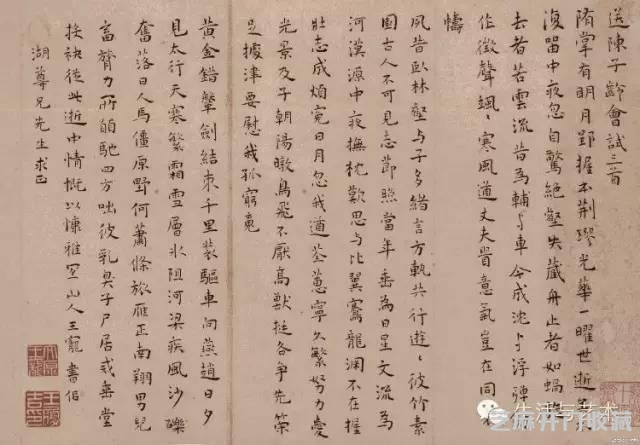 送陳子齡會試三首
隋掌有明月郢握本荆璆光華一曜世逝
復留中夜忽自驚絕壑失藏舟止者如蝸
去者若雲流昔為輔与車今成沈与浮彈
作徵聲颯〻寒風遒丈夫貴意氣豈在同
幬
夙昔臥林壑与子多緒言方軌共行遊〻彼竹素
園古人不可見志節照當年垂為日星文流為
河漢源中夜撫枕歎思与比翼騫龍淵不在握
壯志成煩冤日月忽我遒荃蕙寧久繁努力愛
光景及子朝陽暾鳥飛不厭高獸挺各爭先策
足據津要慰我孤窮
黃金錯轡劍結束千里裝驅車向燕趙日夕
見太行天寒繁霜雪層冰阻河梁疾風沙礫
奮落日人馬僵原野何蕭條旅雁正南翔男兒
富膂力所願馳四方咄彼乳臭子尸居或垂堂
接袂從此逝中情慨以慷雅宜山人王寵書佀
湖尊兄先生求正
生活与艺术
芝麻开门收藏